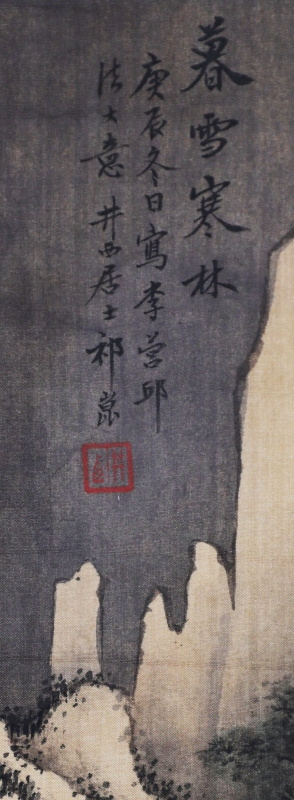 暮雪寒林
庚辰冬日寫李營邱
法大意 井西居士祁崑